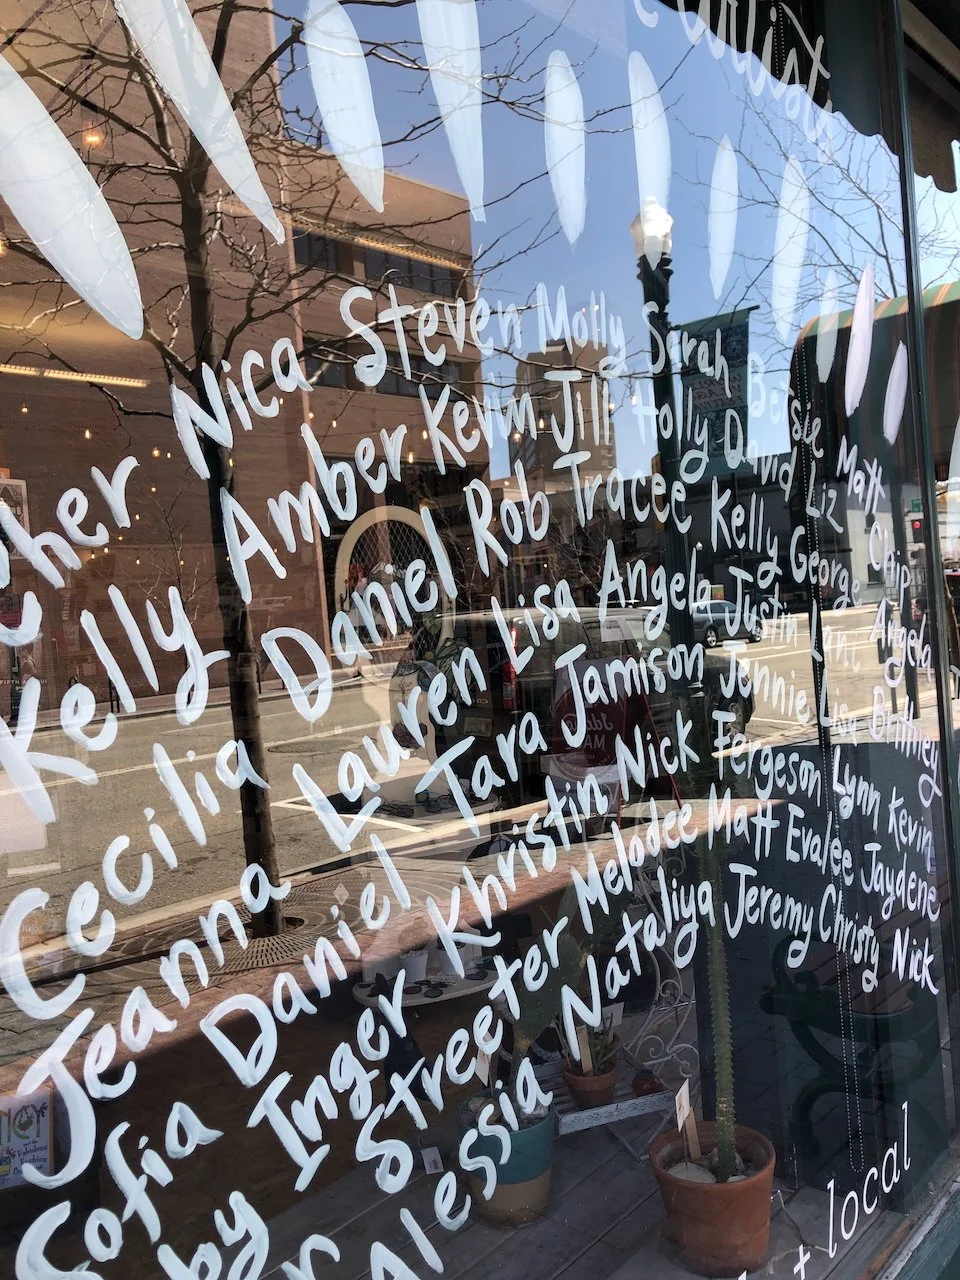 artists
Nica Steven Molly Sarah Betsie Matt
Kelly Amber Kevin Jill Holly David Liz Chip
Cecilia Daniel Rob Tracee Kelly George Angela
Jeanna Lauren Lisa Angela Justin Lani Brittney
Daniel Tara Jamison Jennie Lisa Kevin
Sofia Inger Khristin Nick Fergeson Lynn Jaydene
Streeter Melodee Matt Evalee Nick
Alessia Nataliya Jeremy Christy
+ local